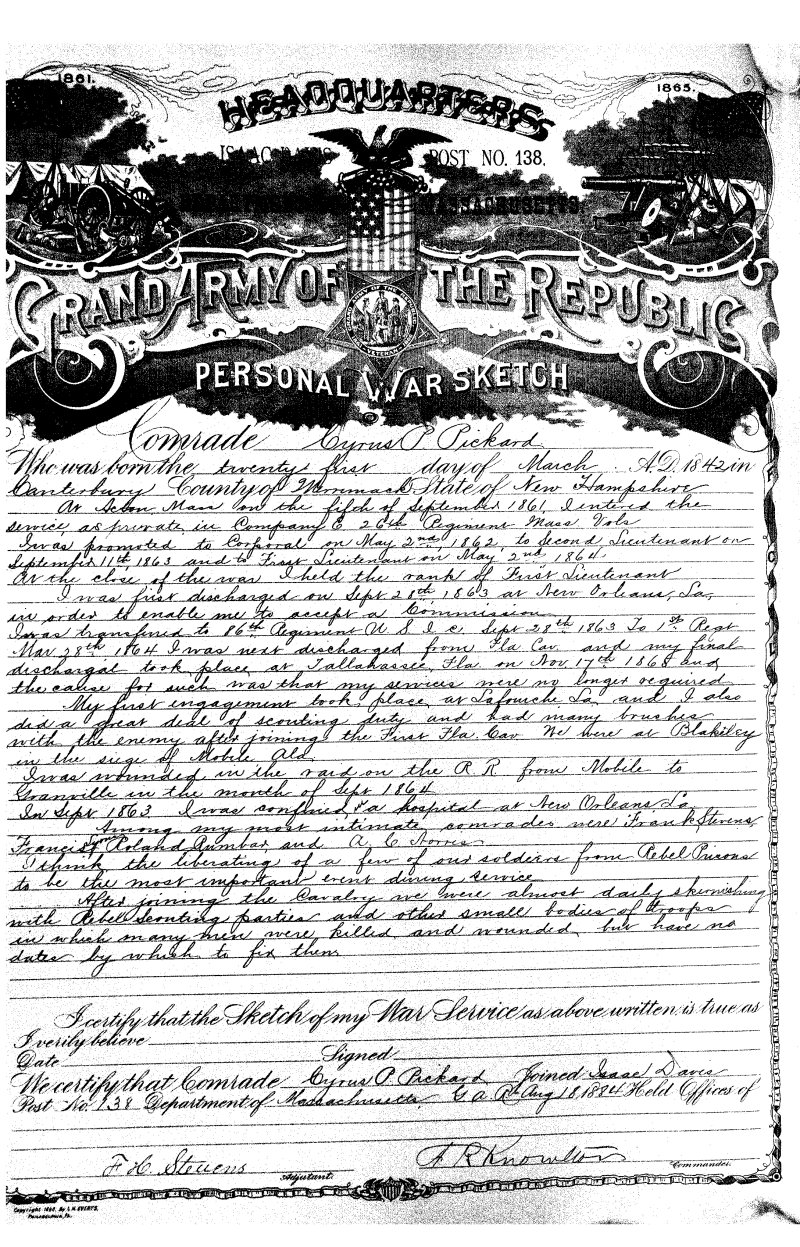 1861.
1865.
HEADQUARTERS
ISAAC DAVIS POST NO. 138.
MASSACHUSETTS.
GRAND ARMY OF THE REPUBLIC
PERSONAL WAR SKETCH
Comrade Cyrus P. Pickard
Who was born the twenty first day of March A.D. 1842 in
Canterbury County of Merrimack State of New Hampshire
At Acton Mass on the fifth of September 1861, I entered the
service as private in Company E 26th Regiment Mass. Vols
I was promoted to Corporal on May 2nd 1862 to Second Lieutenant on
September 11th 1863 and to First Lieutenant on May 2nd 1864.
At the close of the war I held the rank of First Lieutenant
I was first discharged on Sept 28th 1863 at New Orleans, La,
in order to enable me to accept a Commission
I was transfired to 86th Regiment U. S. I. c. Sept 28th 1863 To 1st Regt
Mar 28th 1864 I was next discharged from Fla Cav. and my final
dischargal took place at Tallahassee, Fla on Nov. 17th 1865 and
the cause for such was that my services were no longer required
My first engagement took place at Lafourche La and I also
did a great deal of scouting duty and had many brushes
with the enemy after joining the First Fla Cav We were at Blakiley
in the siege of Mobile Ala.
I was wounded in the raid on the R R from Mobile to
Granville in the month of Sept 1864
In Sept. 1863 I was confined, a hospital at New Orleans La
Among my most intimate comrades were Frank Stevens,
Francis Roland and A C Norris
I think the liberating of a few of our soldiers from Rebel Prisons
to be the most important event during service
After joining the Cavalry we were almost daily skirmishing
with Rebel Scouting parties and other small bodies of troops
in which many men were killed and wounded but have no
dates by which to fix them
I certify that the Sketch of my War Service as above written is true as
I verily believe
Date Signed
We certify that Comrade Cyrus P. Pickard Joined Isaac Davis
Post No. 138 Department of Massachusetts G. A. R. Aug 18, 1884 Held Offices of
F H Stevens
Adjutant.
A R Knowlton
Commander.
Copyright 1890, By L. H. EVERTS,
PHILADELPHIA, PA.